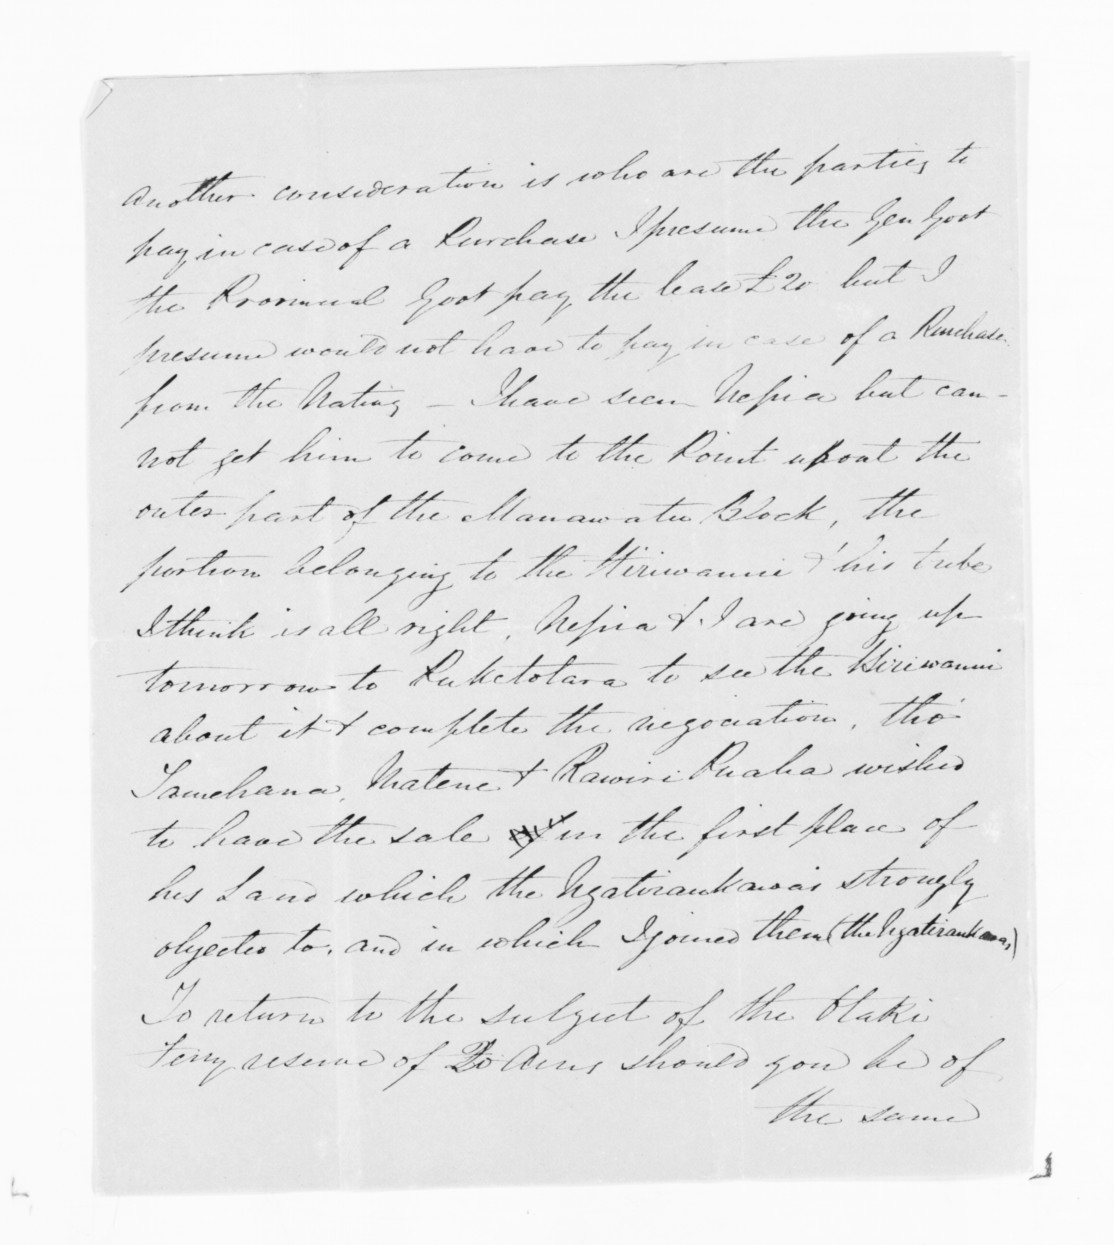 another consideration is who are the parties to
pay in case of a Purchase I presume the Gen Govt
the Provincial Govt pay the lease £20 but I
presume would not have to pay in case of a Purchase
from the Natives – I have seen Nepia but can-
not get him to come to the Point about the
outer part of the Manawatu Block, the
portion belonging to the Hiriwanui & his tribe
I think is all right, Nepia & I are going up
tomorrow to Puketotara to see the Hiriwanui
about it & complete the negociation, tho'
Tamehana, Matene & Rawiri Puaha wished
to have the sale in the first place of
his Land which the Ngatiraukawas strongly
objected to, and in which I joined them (the Ngatiraukawas)
To return to the subject of the Otaki
ferry reserve of 20 Acres should you be of
the same